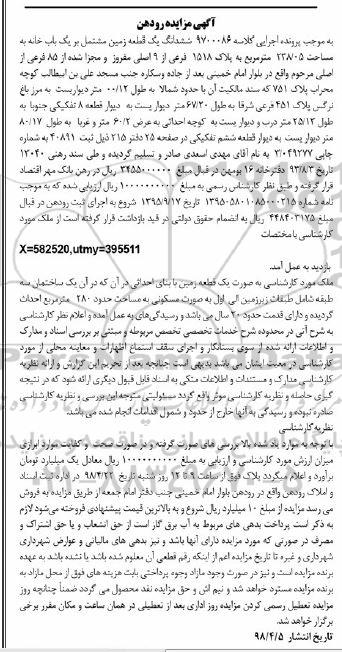 آگهی مزایده رودهن
به موجب پرونده اجرایی کلاسه ۹۷۰۰۰۸۶ ششدانگ یک قطعه زمین مشتمل بر یک باب خانه به
مساحت ۲۳۸/۰۵ مترمربع به پلاک ۱۵۱۸ فرعی از ۹ اصلی مفروز و مجزا شده از ۸۵ فرعی از
اصلی مرحوم واقع در بلوار امام خمینی بعد از جاده وسکاره جنب مسجد علی بن ابیطالب کوچه
محراب پلاک ۷۵۱ که سند مالکیت آن با حدود شمالا به طول ۰۰/۱۲ متر دیواریست به مرز باغ
نرگس پلاک ۴۵۱ فرعی شرقا به طول ۶۷/۲۰ متر دیوار یست به دیوار قطعه ۸ تفکیکی جنوبا به
طول ۲۵/۱۲ متر درب و دیوار یست به کوچه احداثی به عرض ۶۰/۲ متر و غربا به طول ۸۰/۱۷
متر دیوار یست به دیوار قطعه ششم تفکیکی در صفحه ۲۵ دفتر ۲۱۵ ذیل ثبت ۴۰۸۹۱ به شماره
چاپی ۲/۰۴۹۲۷۷ به نام آقای مهدی اسعدی صادر و تسلیم گردیده و طی سند رهنی ۱۲۰۴۰
تاریخ ۹۳/۸/۳ دفترخانه ۱۶ بومهن در قبال مبلغ ۳۴۵۵۰۰۰۰۰۰ ریال در رهن بانک مهر اقتصاد
قرار گرفته و طبق نظر کارشناس رسمی به مبلغ ۱۰۰۰۰۰۰۰۰۰۰ ریال ارزیابی شده که به موجب
نامه شماره ۱۳۹۵۰۵۸۰۱۰۸۵۰۰۰۲۱۵ تاریخ ۱۳۹۵/۹/۱۷ شروع به اجرای ثبت رودهن در قبال
مبلغ ۴۴۸۴۰۳۱۲۵ ریال به انضمام حقوق دولتی در قید بازداشت قرار گرفته است از ملک مورد
کارشناسی با مختصات
X=582520,utmy=395511
بازدید به عمل آمد.
ملک مورد کارشناسی به صورت یک قطعه زمین با بنای احداثی در آن که در آن یک ساختمان سه
طبقه شامل طبقات زیرزمین الی اول به صورت مسکونی به مساحت حدود ۲۸۰ مترمربع احداث
گردیده و دارای قدمت حدود ۲۰ سال می باشد و رسیدگی های به عمل آمده و اعلام نظر کارشناسی
به شرح آتی در محدوده شرح خدمات تخصصی تخصص مربوطه و مبتنی بر بررسی اسناد و مدارک
و اطلاعات ارائه شده از سوی بستانکار و اجرای سقف استماع اظهارات و معاینه محلی از مورد
کارشناسی در معیت ایشان می باشد بدیهی است چنانچه بعد از تحریم این گزارش و ارائه نظریه
کارشناسی مدارک و مستندات و اطلاعات متکی به اسناد قابل قبول دیگری ارائه شود که در نتیجه
گیری حاصله و نظریه کارشناسی موثر واقع گردد مسئولیتی متوجه این بررسی و نظریه کارشناسی
صادره نبوده و رسیدگی به آنها خارج از حدود و شمول اقدامات انجام شده می باشد.
نظریه کارشناسی
با توجه به موارد یاد شده بالا بررسی های صورت گرفته و در صورت صحت و کفایت موارد ابرازی
میزان ارزش مورد کارشناسی و ارزیابی به مبلغ ۱۰۰۰۰۰۰۰۰۰۰ ریال معادل یک میلیارد تومان
برآورد و اعلام میگردد پلاک فوق از ساعت ۹ تا ۱۲ روز شنبه تاریخ ۹۸/۴/۲۲ در اداره ثبت اسناد
و املاک رودهن واقع در رودهن بلوار امام خمینی جنب دفتر امام جمعه از طریق مزایده به فروش
می رسد مزایده از مبلغ ۱۰ میلیارد ریال شروع و به بالاترین قیمت پیشنهادی فروخته می شود لازم
به ذکر است پرداخت بدهی های مربوط به آب برق گاز است از حق انشعاب و یا حق اشتراک و
مصرف در صورتی که مورد مزایده دارای آنها باشد و نیز بدهی های مالیاتی و عوارض شهرداری
شهرداری و غیره تا تاریخ مزایده اعم از اینکه رقم قطعی آن معلوم شده باشد یا نشده باشد به عهده
برنده مزایده است و نیز در صورت وجود مازاد وجوه پرداختی بابت هزینه های فوق از محل مازاد به
برنده مزایده مسترد خواهد شد و نیم اش و حق مزایده نقد محصول می گردد ضمناً چنانچه روز
مزایده تعطیل رسمی کردن مزایده روز اداری بعد از تعطیلی در همان ساعت و مکان مقرر برخی
برگزار خواهد شد.
تاریخ انتشار ۹۸/۴/۵